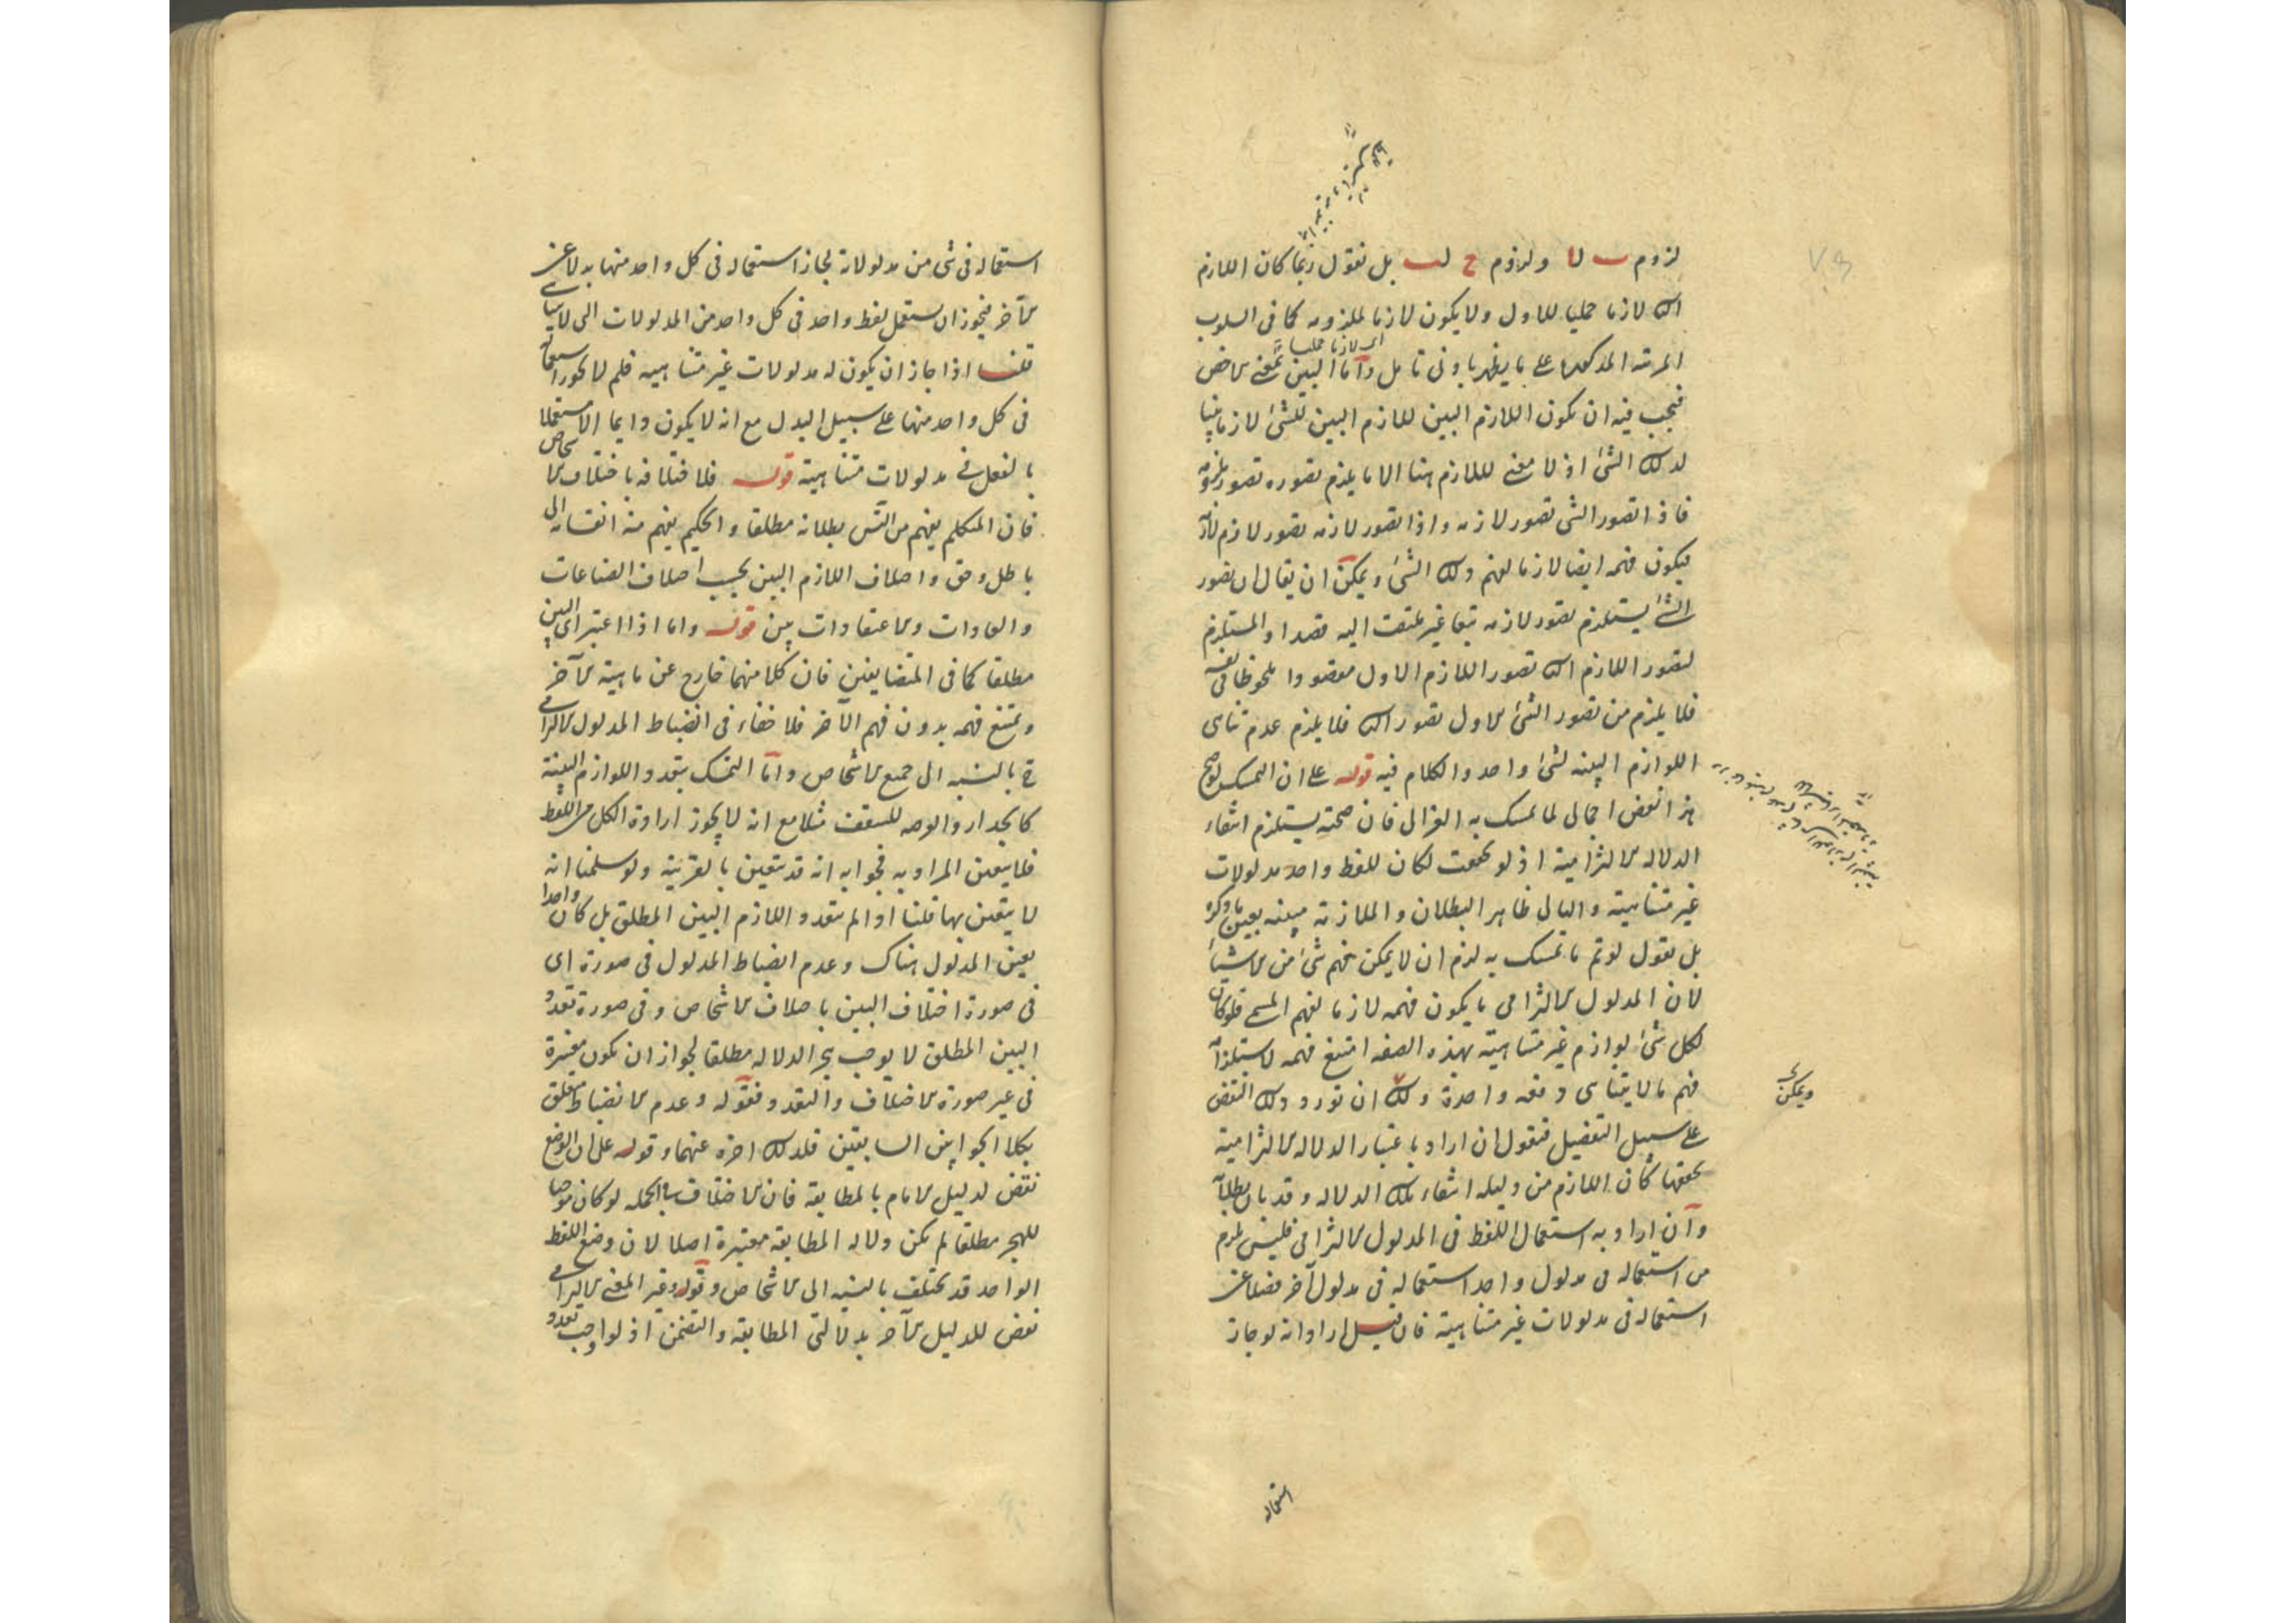 لزوم ب لا ولزوم ج لب بل نقول ربما كان اللازم
الثانى لازما حمليا للاول ولا يكون لازما لملزومه كما فى السلوب
المرتبة المذكورة على ما يظهر بادنى تامل واما البين بمعنى الاخص
اى لازما حمليا
فيجب فيه ان يكون اللازم البين للازم البين للشئ لازما بينا
لذلك الشئ اذ لا معنى لللازم هنا الا ما يلزم تصوره تصور ملزومه
فاذا تصور الشى تصور لازمه واذا تصور لازمه تصور لازم لازمه
فيكون فهمه ايضا لازما لفهم ذلك الشئ ويمكن ان يقال ان تصور
الشئ يستلزم تصور لازمه تبعا غير ملتفت اليه قصدا والمستلزم
لتصور اللازم الثانى تصور اللازم الاول مقصودا ملحوظا فى نفسه
فلا يلزم من تصور الشئ الاول تصور الثانى فلا يلزم عدم تناهى
اللوازم البينه لشئ واحد والكلام فيه قوله على ان التمسك لو صح
هذا نقض اجمالى لما تمسك به الغزالى فان صحته يستلزم انتفاء
الدلاله الالتزامية اذ لو تحققت لكان للفظ واحد مدلولات
غير متناهية والتالى ظاهر البطلان والملازمة مبينه بعين ما ذكره
بل نقول لو تم ما تمسك به لزم ان لا يمكن فهم شئ من الاشياء
لان المدلول الالتزامى ما يكون فهمه لازما لفهم المسمى فلو كان
لكل شئ لوازم غير متناهية بهذه الصفه امتنع فهمه لاستلزامه
فهم ما لا يتناهى دفعه واحدة ولك ان تورد ذلك النقض
على سبيل التفصيل فنقول ان اراد باعتبار الدلاله الالتزامية
تحققها كان اللازم من دليله انتفاء تلك الدلاله وقد بان بطلانه
وان اراد به استعمال اللفظ فى المدلول الالتزامى فليس يلزم
من استعماله فى مدلول واحد استعماله فى مدلول آخر فضلا عن
استعماله فى مدلولات غير متناهية فان قيل اراد انه لو جاز
ويمكن
استعماله
استعماله فى شئ من مدلولاته لجاز استعماله فى كل واحد منها بدلا عن
الآخر فيجوز ان يستعمل لفظ واحد فى كل واحد من المدلولات التى لا يتناهى
قلنا اذا جاز ان يكون له مدلولات غير متناهية فلم لا يجوز استعماله
فى كل واحد منها على سبيل البدل مع انه لا يكون دايما الا مستعملا
بالفعل فى مدلولات متناهية قوله فلاختلافه باختلاف الاشخاص
فان المتكلم يفهم من القياس بطلانه مطلقا والحكيم يفهم منه انقسامه الى
باطل وحق واختلاف اللازم البين بحسب اختلاف الصناعات
والعادات والاعتقادات بين قوله واما اذا اعتبر اى البين
مطلقا كما فى المتضايفين فان كلا منهما خارج عن ماهية الآخر
ويمتنع فهمه بدون فهم الآخر فلا خفاء فى انضباط المدلول الالتزامى
ح بالنسبه الى جميع الاشخاص واما التمسك بتعدد اللوازم البينة
كالجدار والوجه للسقف مثلا مع انه لا يجوز ارادة الكل من اللفظ
فلا يتعين المراد به فجوابه انه قد يتعين بالقرينة ولو سلمنا انه
لا يتعين بها قلنا اذا لم يتعدد اللازم البين المطلق بل كان واحدا
يعين المدلول هناك وعدم انضباط المدلول فى صورة اى
فى صورة اختلاف البين باختلاف الاشخاص وفى صورة تعدد
البين المطلق لا يوجب هجر الدلاله مطلقا لجواز ان يكون معتبرة
فى غير صورة الاختلاف والتعدد فقوله وعدم الانضباط متعلق
بكلا الجوابين السابقين فلذلك اخره عنهما وقوله على ان الوضع
نقض لدليل الامام بالمطابقة فان الاختلاف فى الجمله لو كان موجبا
للهجر مطلقا لم يكن دلاله المطابقة معتبرة اصلا لان وضع اللفظ
الواحد قد يختلف بالنسبه الى الاشخاص وقوله وغير المعنى الالتزامى
نقض للدليل الآخر بدلالتى المطابقة والتضمن اذ لو اوجب تعدد